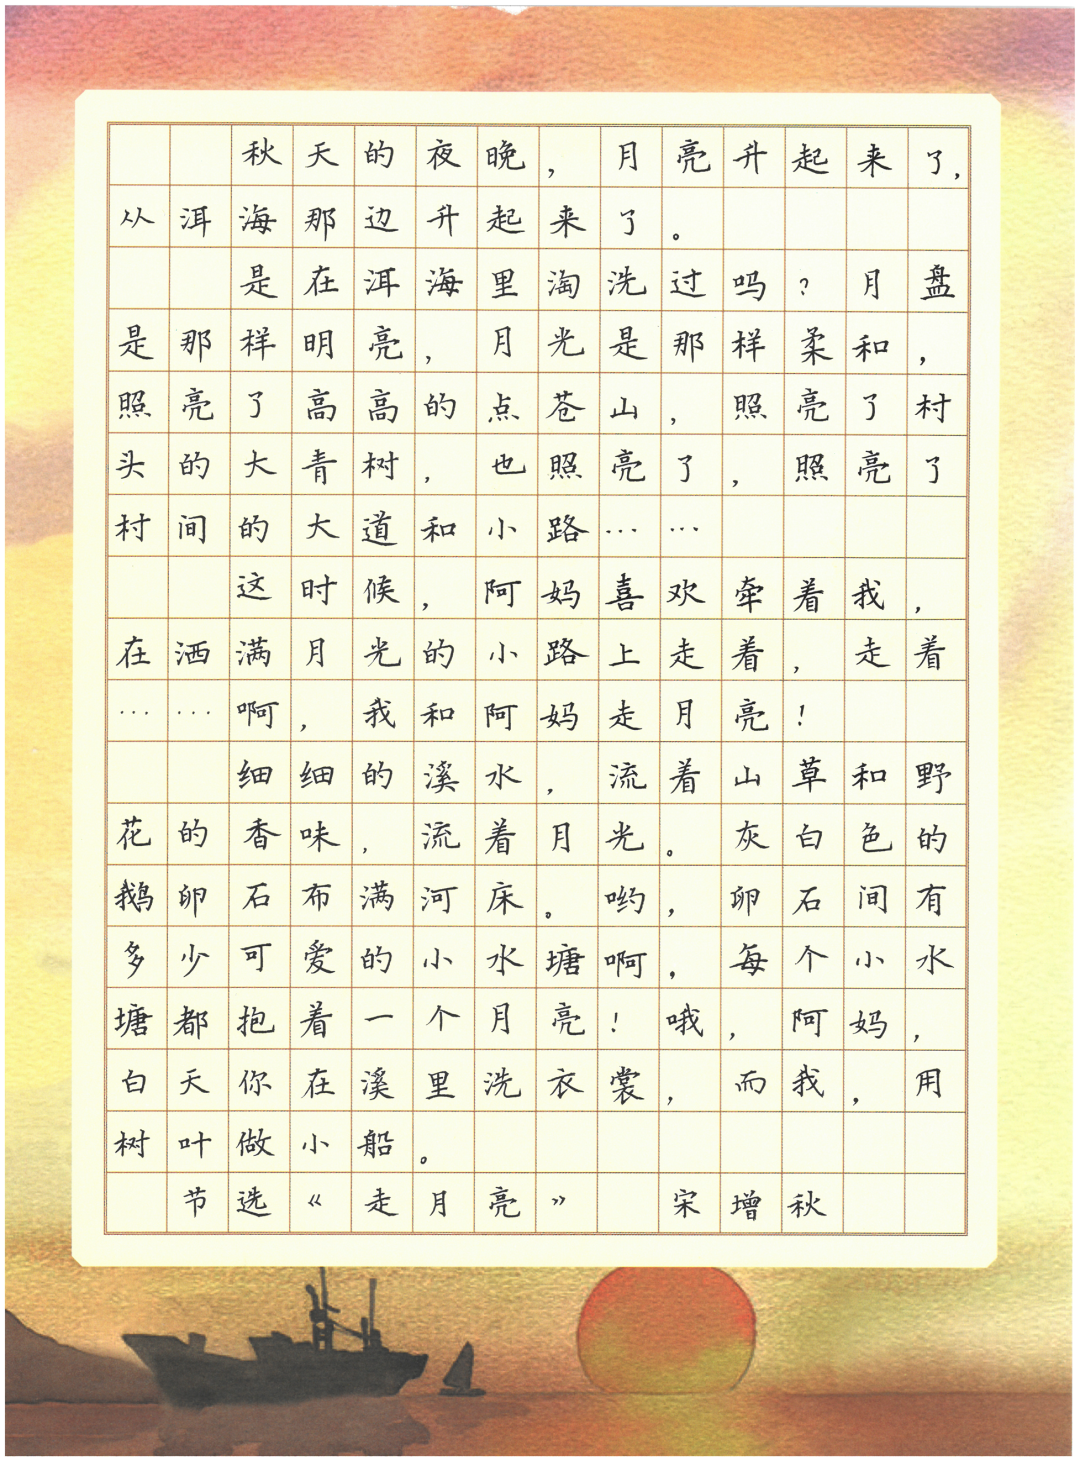 秋天的夜晚，月亮升起来了，
从洱海那边升起来了。
是在洱海里淘洗过吗？月盘
是那样明亮，月光是那样柔和，
照亮了高高的点苍山，照亮了村
头的大青树，也照亮了，照亮了
村间的大道和小路……
这时候，阿妈喜欢牵着我，
在洒满月光的小路上走着，走着
……啊，我和阿妈走月亮！
细细的溪水，流着山草和野
花的香味，流着月光。灰白色的
鹅卵石布满河床。哟，卵石间有
多少可爱的小水塘啊，每个小水
塘都抱着一个月亮！哦，阿妈，
白天你在溪里洗衣裳，而我，用
树叶做小船。
节选《走月亮》 宋增秋